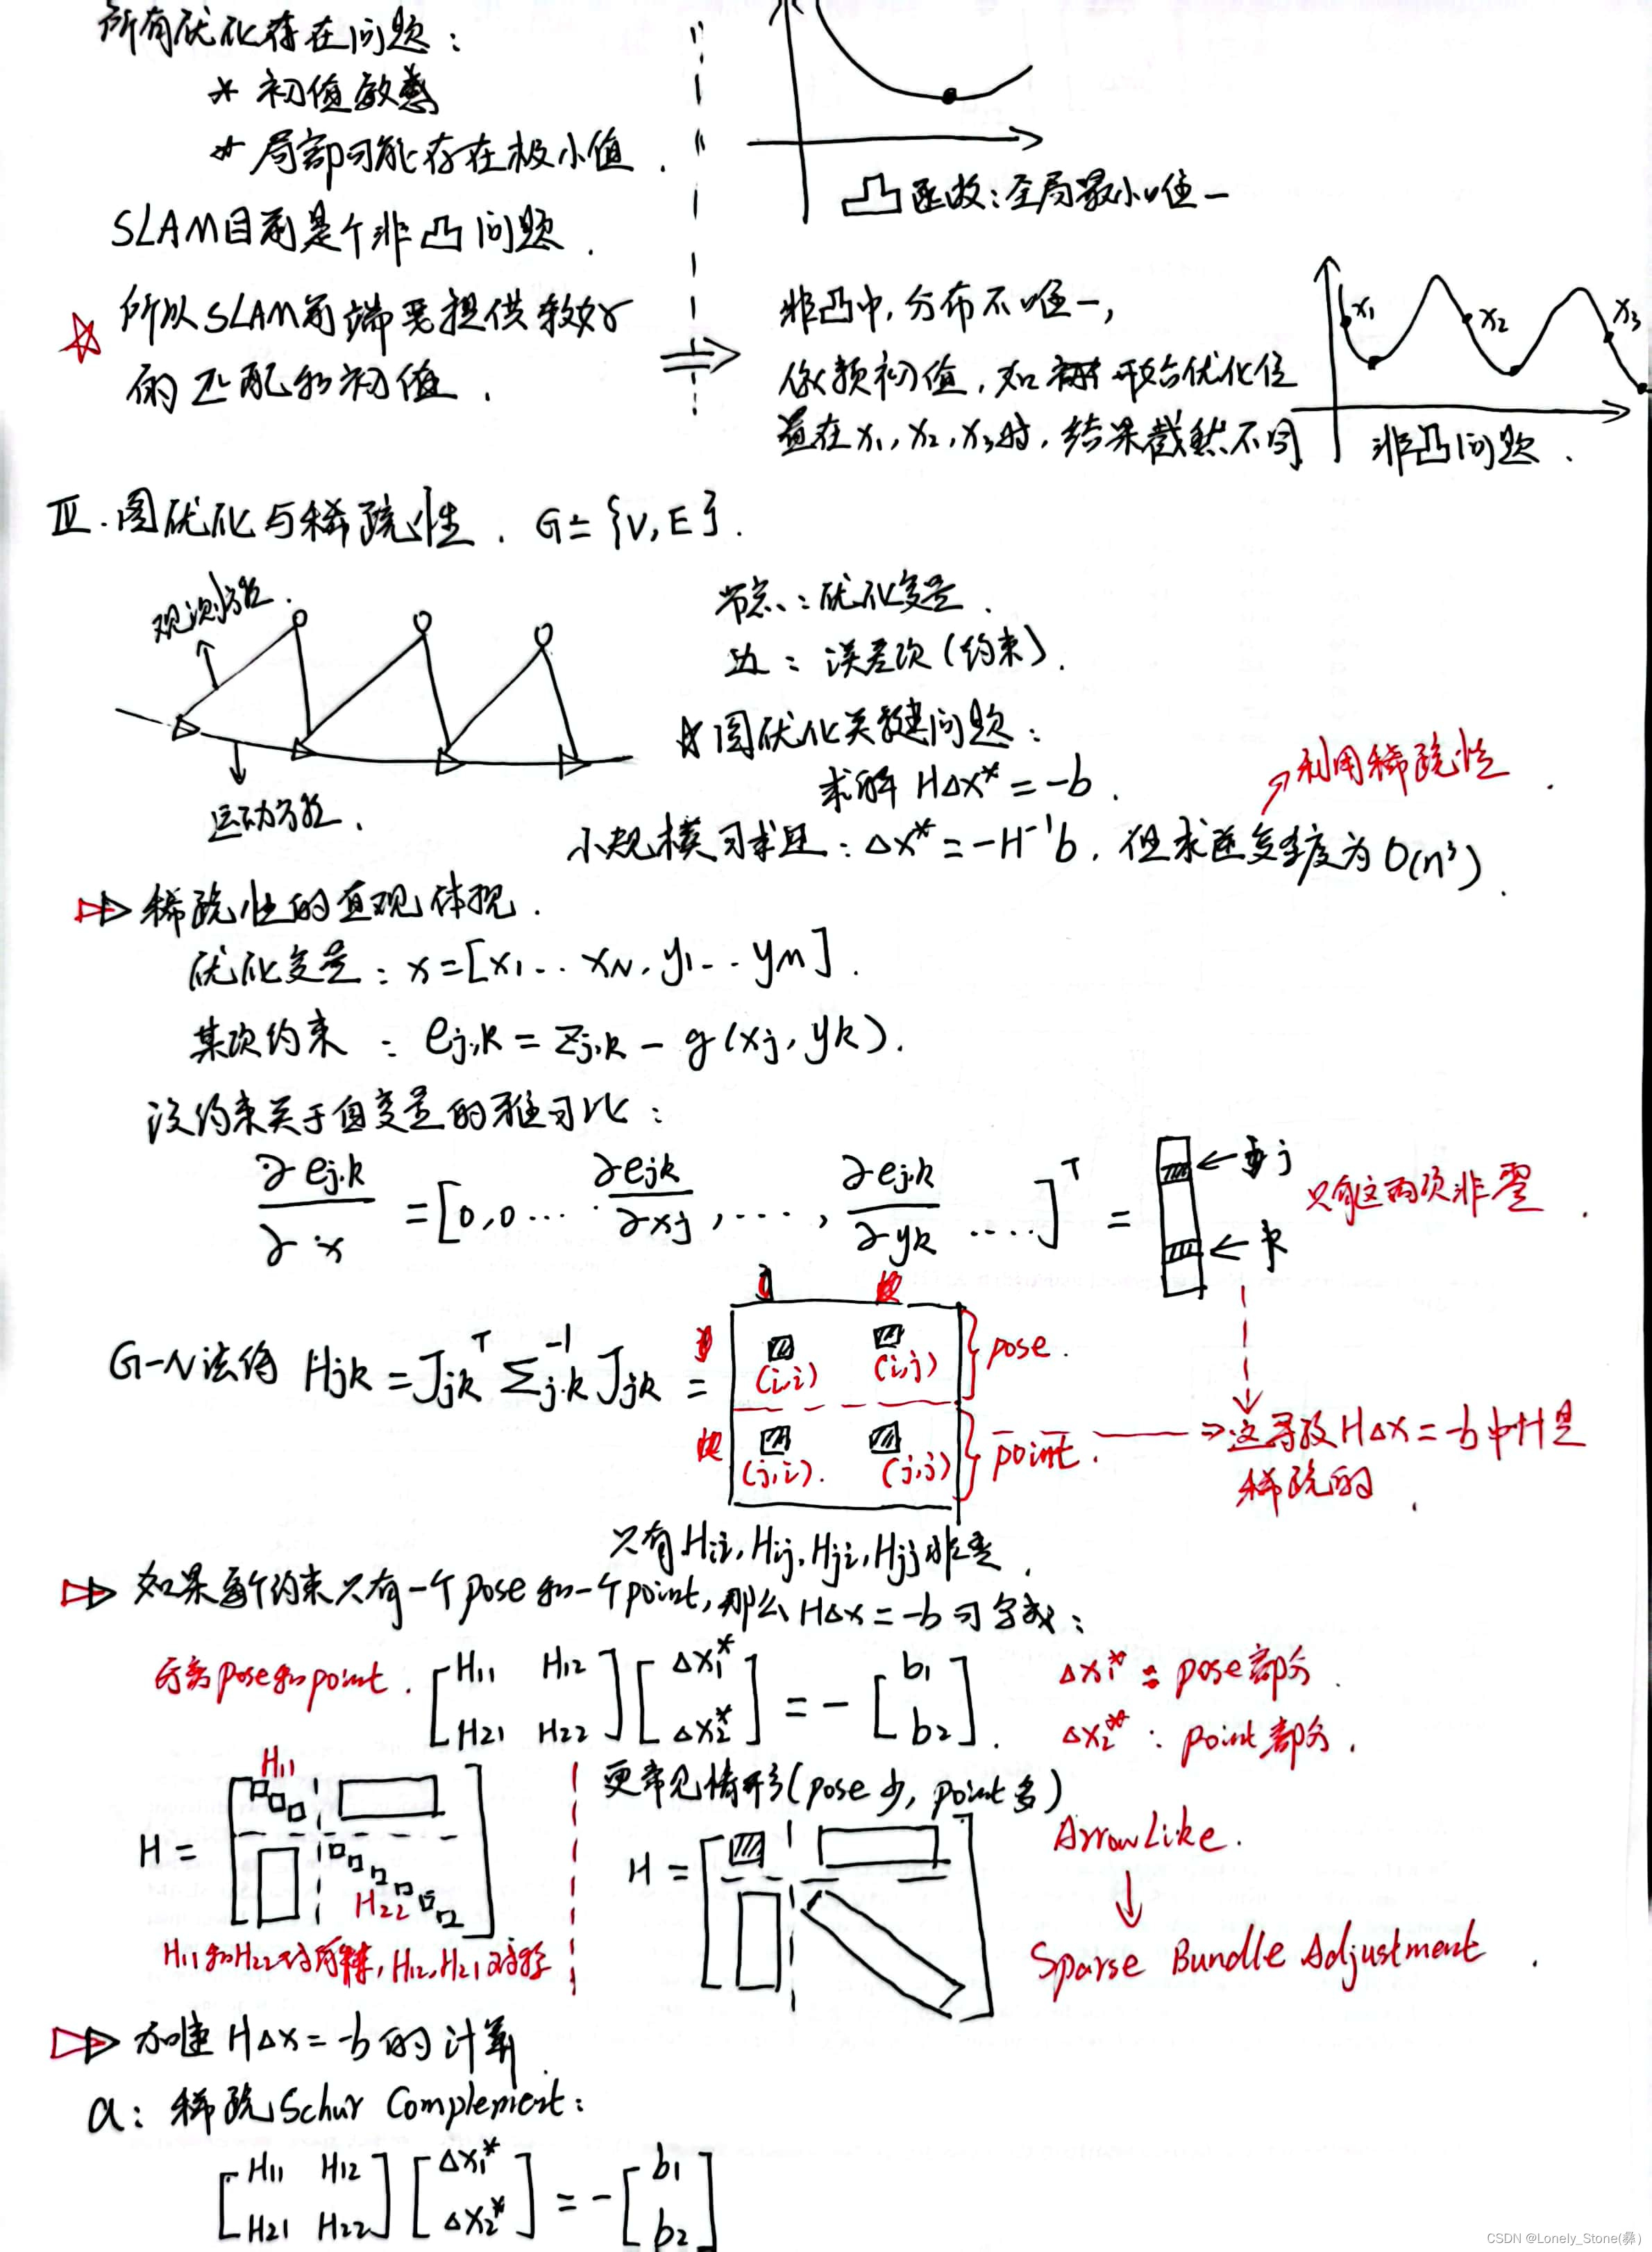 所有优化存在问题：
* 初值敏感
* 局部可能存在极小值.
SLAM目前是个非凸问题.
所以SLAM前端要提供较好
的匹配和初值.
凸函数：全局最小唯一
非凸中，分布不唯一，
依赖初值，如开始优化位
置在x1，x2，x3时，结果截然不同
x1 x2 x3
非凸问题.
Ⅲ.图优化与稀疏性. G={V,E}.
观测方程.
运动方程.
节点：优化变量.
边：误差项(约束).
☆图优化关键问题：
求解 HΔx* = -b.
利用稀疏性.
小规模可求逆：Δx* = -H⁻¹b，但求逆复杂度为O(n³).
稀疏性的直观体现.
优化变量：x=[x1...xN, y1...yM].
某次约束：ej,k = zj,k - g(xj, yk).
该约束关于自变量的雅可比：
∂ej,k/∂x = [0,0... ∂ejk/∂xj, ...., ∂ej,k/∂yk ....]ᵀ =
j
k
只有这两项非零.
G-N法得 Hjk = Jjkᵀ Σj,k⁻¹ Jjk =
(i,i) (i,j) pose.
(j,i). (j,j) point.
→这导致HΔx=-b中H是
稀疏的.
只有Hii, Hij, Hji, Hjj非零.
如果每个约束只有一个pose和一个point，那么HΔx=-b可写成：
分离pose和point.
[H11 H12; H21 H22][Δx1*; Δx2*] = -[b1; b2].
Δx1*：pose部分.
Δx2*：point部分.
H11
H =
H22
H11和H22对角，H12, H21对称
更常见情形(pose少，point多)
H =
ArrowLike.
Sparse Bundle Adjustment.
加速HΔx=-b的计算.
a：稀疏Schur Complement：
[H11 H12; H21 H22][Δx1*; Δx2*] = -[b1; b2]
CSDN @Lonely_Stone(彝)